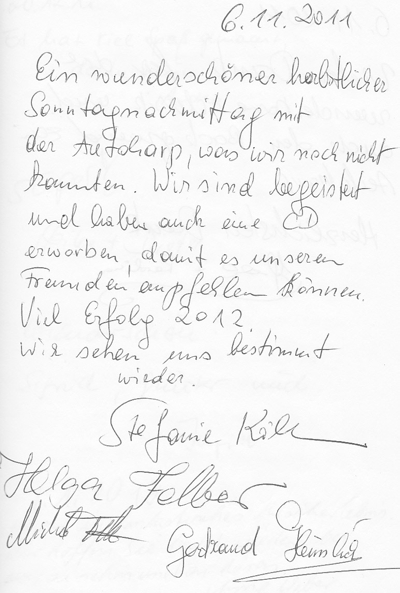 6.11.2011
Ein wunderschöner herbstlicher
Sonntagnachmittag mit
der Autoharp, was wir noch nicht
kannten. Wir sind begeistert
und haben auch eine CD
erworben, damit es unseren
Freunden empfehlen können.
Viel Erfolg 2012.
Wir sehen uns bestimmt
wieder.
Stefanie
Helga Felber
Gertraud